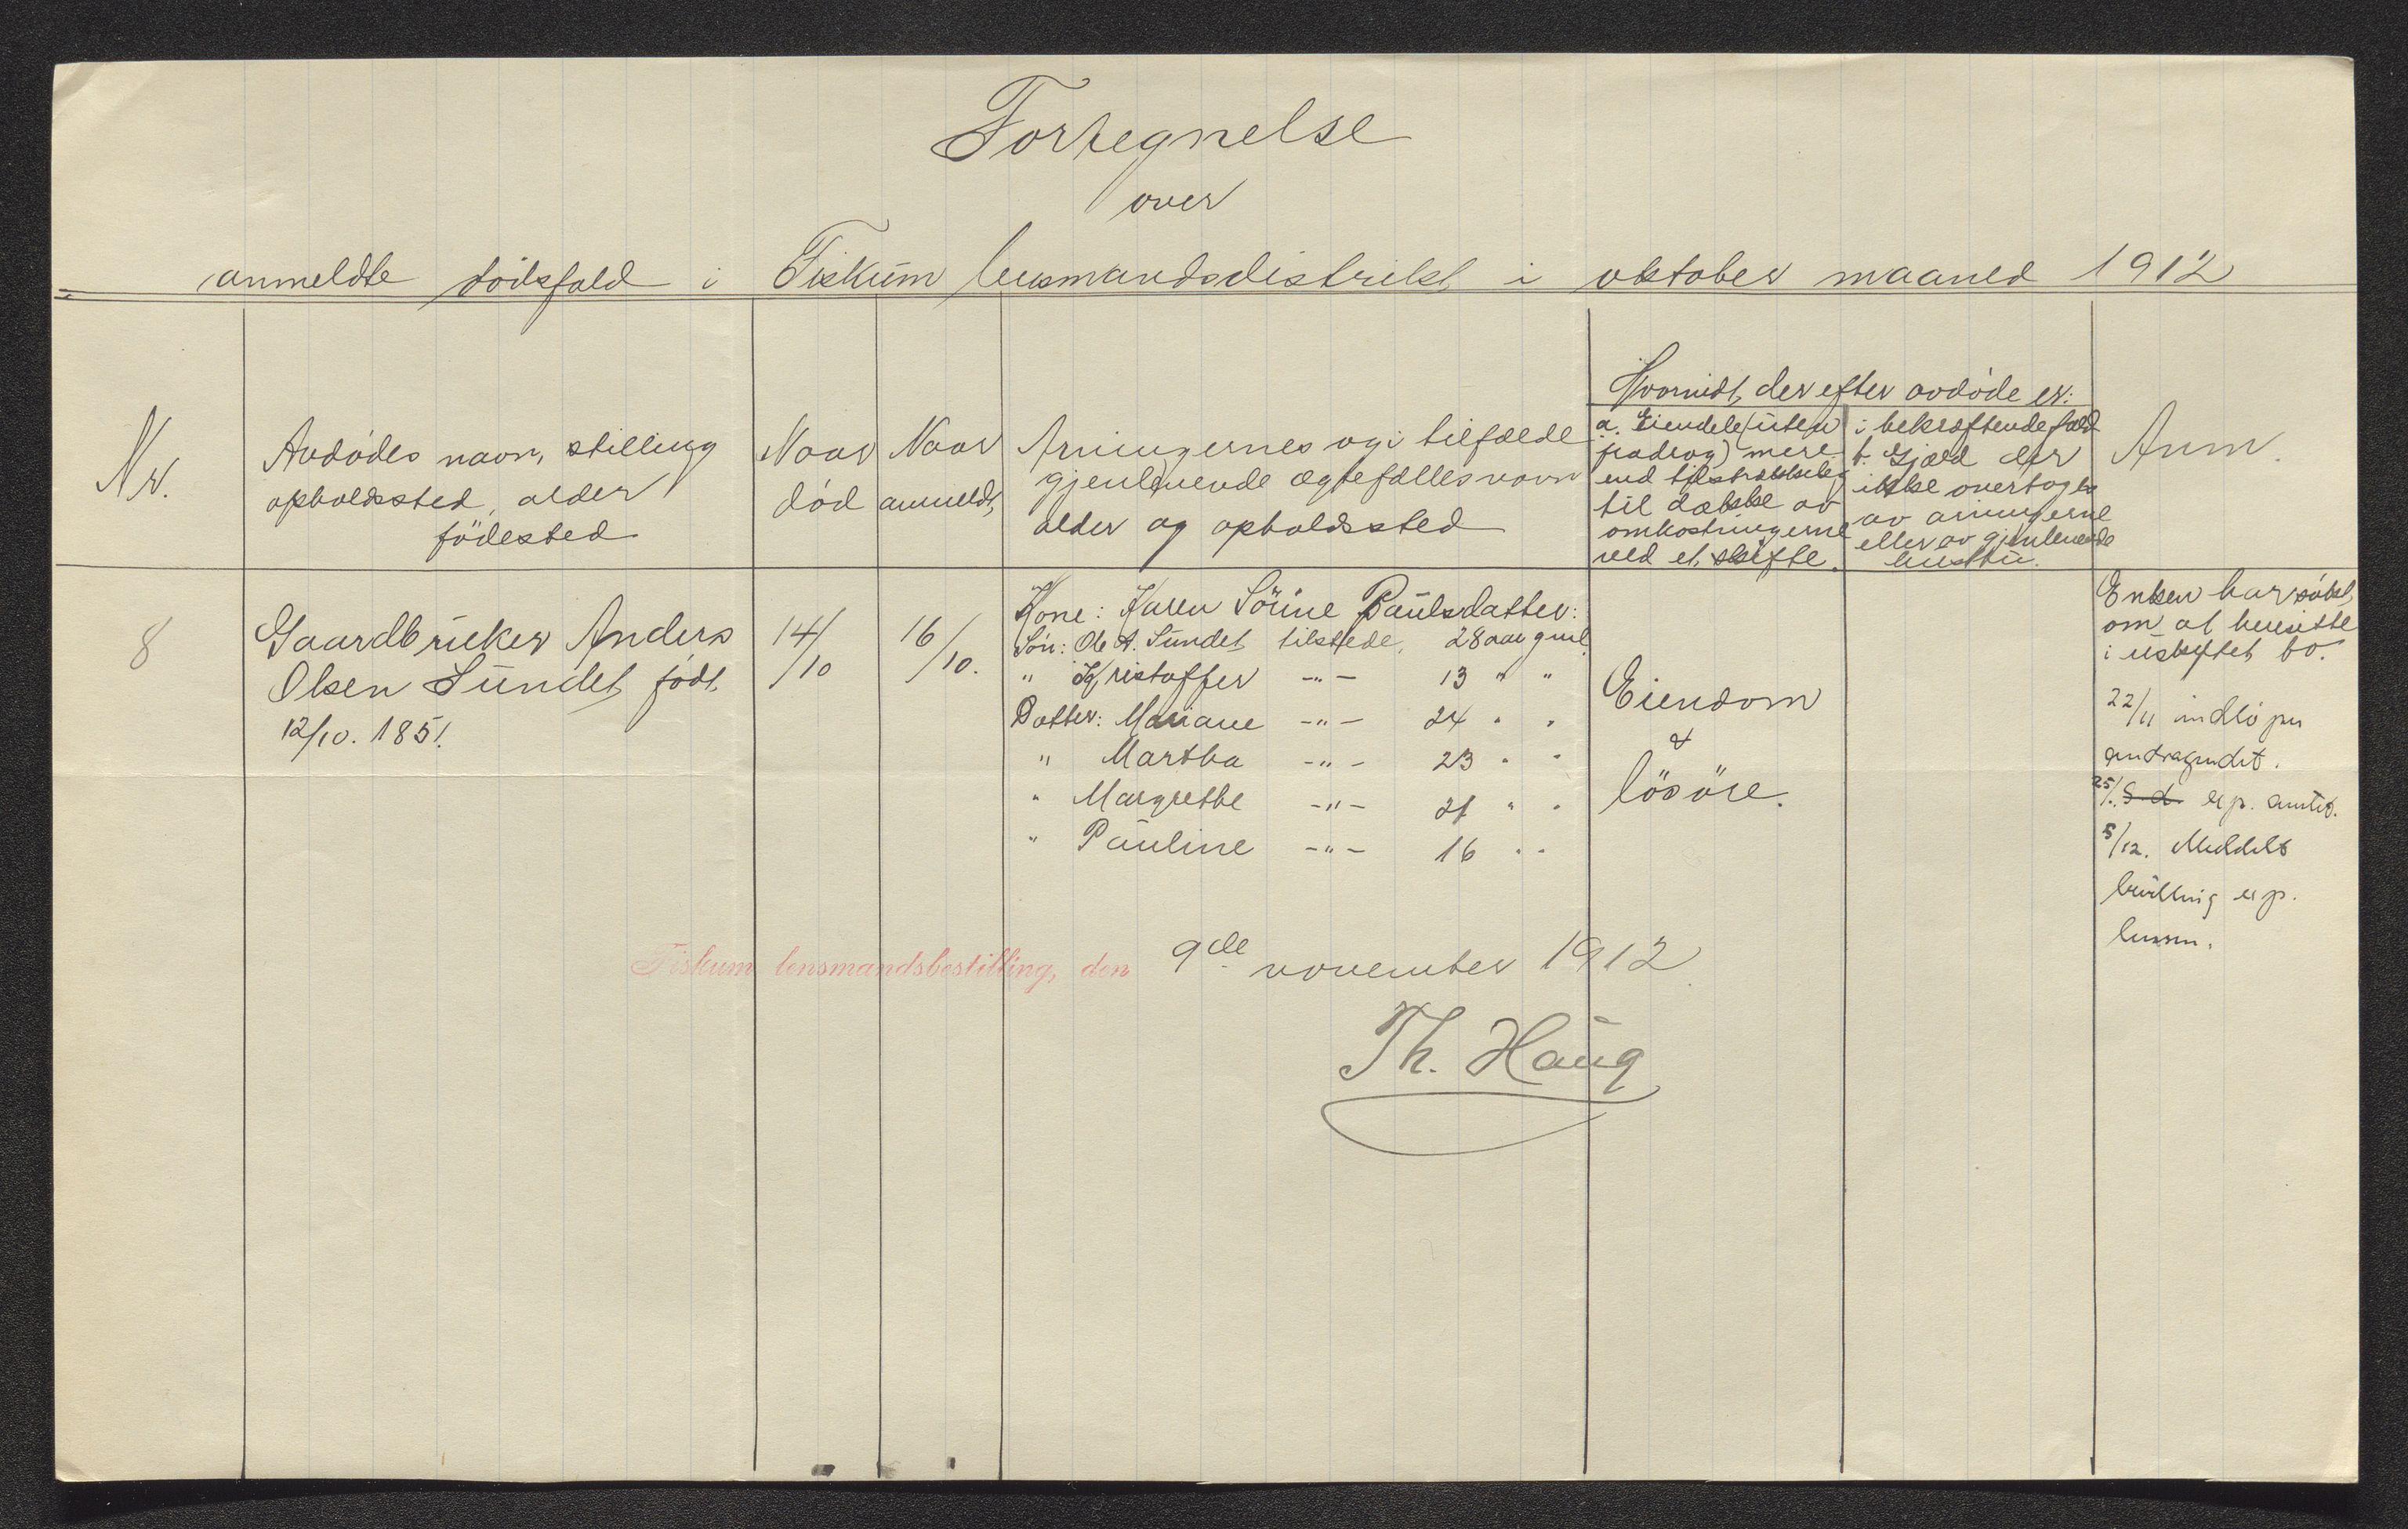 Fortegnelse
over
anmeldte dödsfald i Fiskum lensmandsdistrikt i oktober maaned 1912
Nr.
Avdödes navn, stilling
opholdssted, alder
födested
Naar
död
Naar
anmeldt,
Arvingernes og i tilfælde
gjenlevende ægtefælles navn
alder og opholdssted
Hvorvidt, der efter avdöde er:
a. Eiendele (uten
fradrag) mere
end tilstrækkelig
til dække av
omkostningerne
ved et skifte.
i bekræftende fald
b. Gjæld der
ikke overtages
av arvingerne
eller av gjenlevende
hustru.
Anm.
8
Gaardbruker Anders
Olsen Sundet født
12/10. 1851.
14/
/10
16/
/10.
Kone: Karen Sörine Paulsdatter:
Sön: Ole A. Sundet tilstede, 28 aar gml.
" Kristoffer -"- 13 " "
Datter: Mariane -"- 24 " "
" Martha -"- 23 " "
" Margrethe -"- 21 " "
" Pauline -"- 16 " "
Eiendom
&
lösöre.
Enken har sökt,
om at hensitte
i uskiftet bo.
22/11 indlöper
andragendet.
25/. S. d. exp. amtet.
5/12. Meddelt
bevilling exp.
lensm.
Fiskum lensmandsbestilling, den 9de november 1912.
Th. Haug